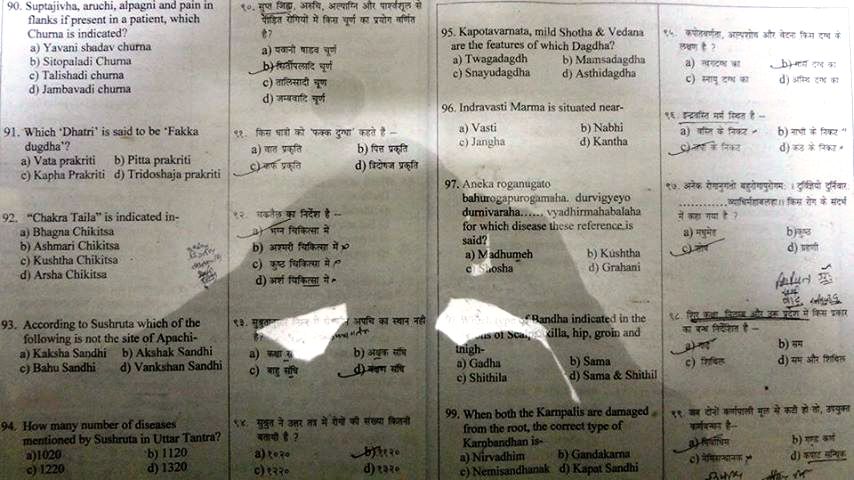 90. Suptajivha, aruchi, alpagni and pain in
flanks if present in a patient, which
Churna is indicated?
a) Yavani shadav churna
b) Sitopaladi Churna
c) Talishadi churna
d) Jambavadi churna
91. Which 'Dhatri' is said to be 'Fakka
dugdha'?
a) Vata prakriti b) Pitta prakriti
c) Kapha Prakriti d) Tridoshaja prakriti
92. "Chakra Taila" is indicated in-
a) Bhagna Chikitsa
b) Ashmari Chikitsa
c) Kushtha Chikitsa
d) Arsha Chikitsa
93. According to Sushruta which of the
following is not the site of Apachi-
a) Kaksha Sandhi b) Akshak Sandhi
c) Bahu Sandhi d) Vankshan Sandhi
94. How many number of diseases
mentioned by Sushruta in Uttar Tantra?
a)1020 b) 1120
c) 1220 d) 1320
९०. सुप्त जिह्वा, अरुचि, अल्पाग्नि और पार्श्वशूल से
पीड़ित रोगियों में किस चूर्ण का प्रयोग वर्णित
है?
a) यवानी षाडव चूर्ण
b) सितोपलादि चूर्ण
c) तालिसादी चूर्ण
d) जम्बवाटि चूर्ण
९१. किस धात्री को 'फक्क दुग्धा' कहते है –
a) वात प्रकृति b) पित्त प्रकृति
c) कफ प्रकृति d) त्रिदोषज प्रकृति
९२. चक्रतैल का निर्देश है –
a) भग्न चिकित्सा में
b) अश्मरी चिकित्सा में
c) कुष्ठ चिकित्सा में
d) अर्श चिकित्सा में
९३. अपचि का स्थान नही
है?
a) कक्षा b) अक्षक संधि
c) बाहु संधि d) वंक्षण संधि
९४. सुश्रुत ने उत्तर तंत्र में रोगों की संख्या कितनी
बतायी है ?
a) १०२० b) ११२०
c) १२२० d) १३२०
95. Kapotavarnata, mild Shotha & Vedana
are the features of which Dagdha?
a) Twagadagdh b) Mamsadagdha
c) Snayudagdha d) Asthidagdha
96. Indravasti Marma is situated near-
a) Vasti b) Nabhi
c) Jangha d) Kantha
97. Aneka roganugato
bahurogapurogamaha. durvigyeyo
durnivaraha...... vyadhirmahabalaha
for which disease these reference is
said?
a) Madhumeh b) Kushtha
c) Shosha d) Grahani
Bandha indicated in the
of Scalp, axilla, hip, groin and
thigh-
a) Gadha b) Sama
c) Shithila d) Sama & Shithil
99. When both the Karnpalis are damaged
from the root, the correct type of
Karnbandhan is-
a) Nirvadhim b) Gandakarna
c) Nemisandhanak d) Kapat Sandhi
९५. कपोतवर्णता, अल्पशोथ और वेदना किस दग्ध के
लक्षण है ?
a) त्वगदग्ध b) मांस दग्ध का
c) स्नायु दग्ध का d) अस्थि दग्ध का
९६. इन्द्रवस्ति मर्म स्थित है –
a) वस्ति के निकट b) नाभी के निकट
c) जंघा के निकट d) कंठ के निकट
९७. अनेक रोगानुगतो बहुरोगपुरोगमः । दुर्विज्ञेयो दुर्निवारः
...............व्याधिर्महाबलः।। किस रोग के संदर्भ
में कहा गया है ?
a) मधुमेह b)कुष्ठ
c) शोष d) ग्रहणी
९८. प्रदेश में किस प्रकार
का बन्ध निर्देशित है –
a) गाढ़ b) सम
c) शिथिल d) सम और शिथिल
९९. जब दोनों कर्णपाली मूल में कटी हो तो, उपयुक्त
कर्णबन्धन है–
a) निर्वाधिम b) गण्ड कर्ण
c) नेमिसन्धानक d) कपाट सन्धिक